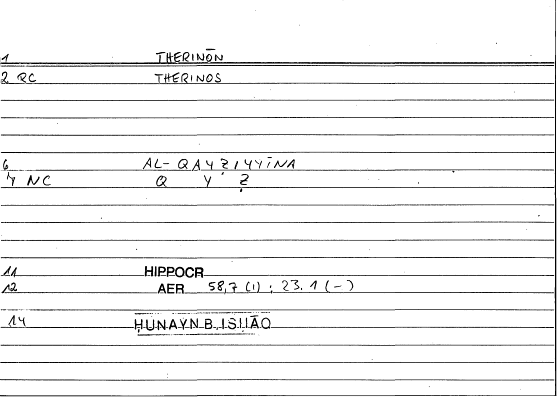 1 THERINŌN
2 RC THERINOS
6 AL-QAYẒIYYĪNA
7 NC Q Y Ẓ
11 HIPPOCR
12 AER 58,7 (1) : 23.1 (-)
14 ḤUNAYN B. ISḤĀQ